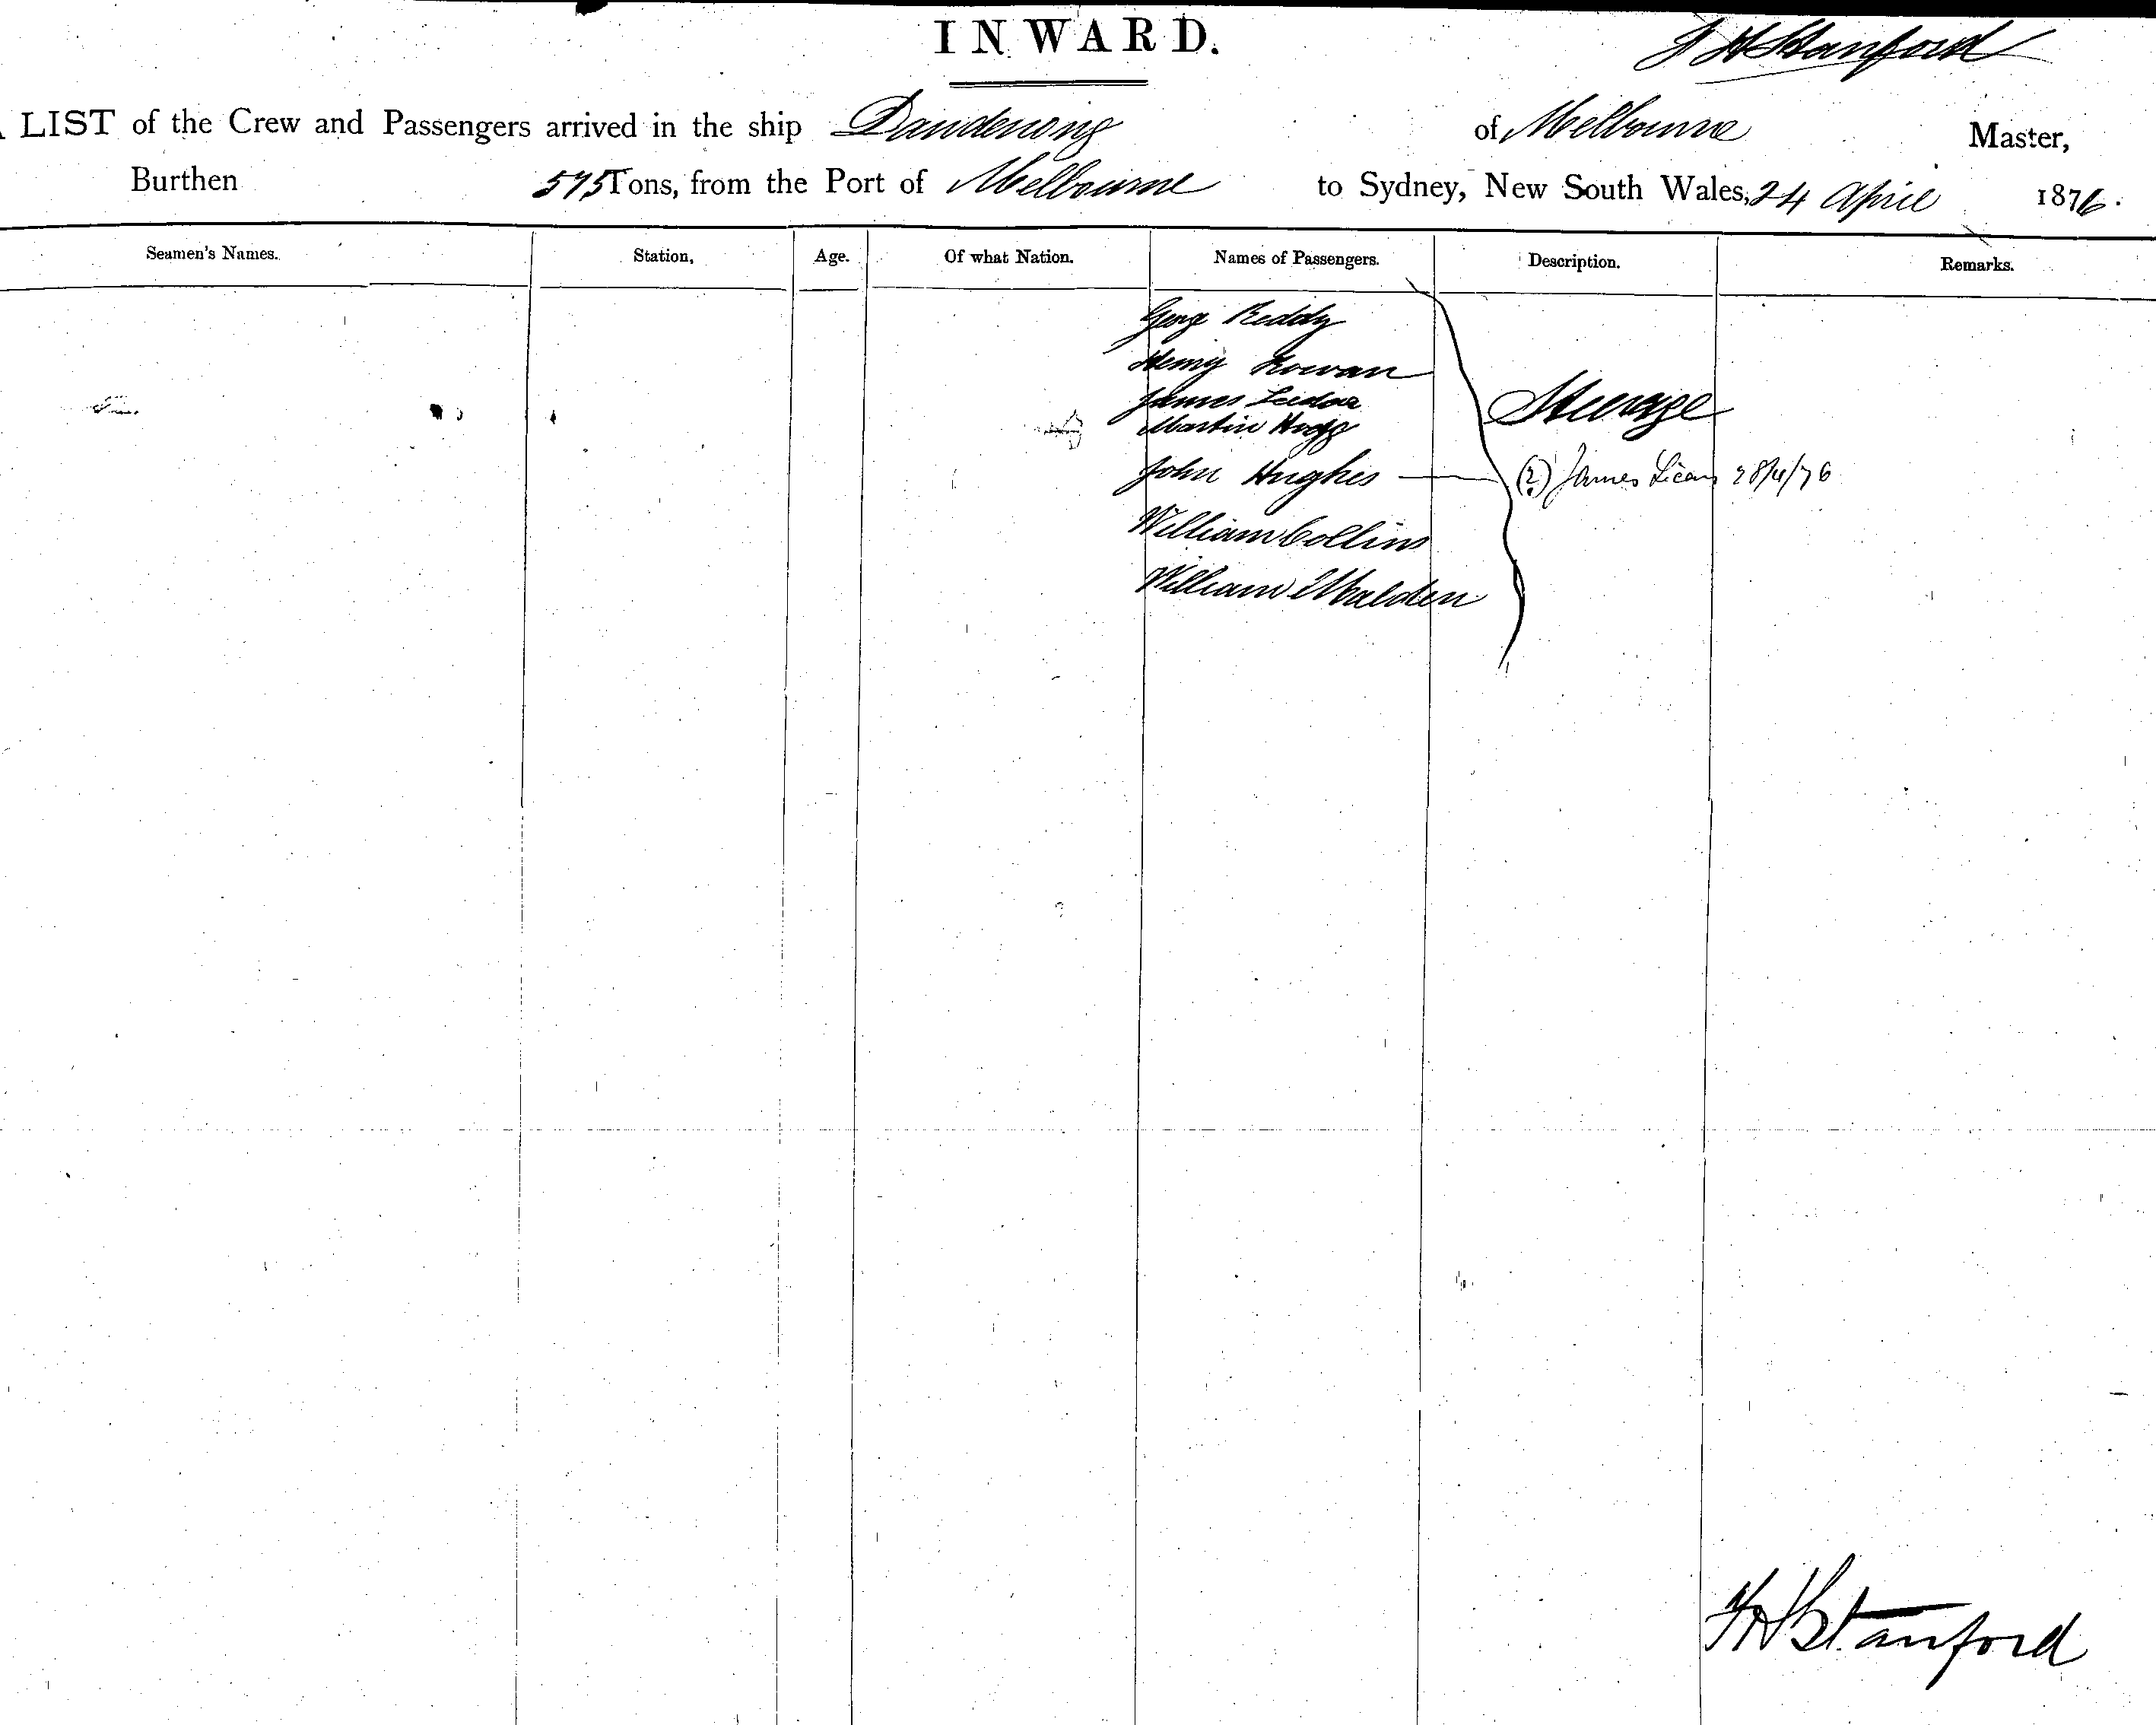 INWARD.
Stanford
LIST of the Crew and Passengers arrived in the ship Dandenong of Melbourne Master,
Burthen 575 Tons, from the Port of Melbourne to Sydney, New South Wales, 24 April 1876.
Seamen's Names. Station, Age. Of what Nation. Names of Passengers. Description. Remarks.
George Reddy
Henry Rowan
James
Martin Hogg
Steerage
John Hughes — (?) James 28/4/76
William Collins
William Whalden
Stanford